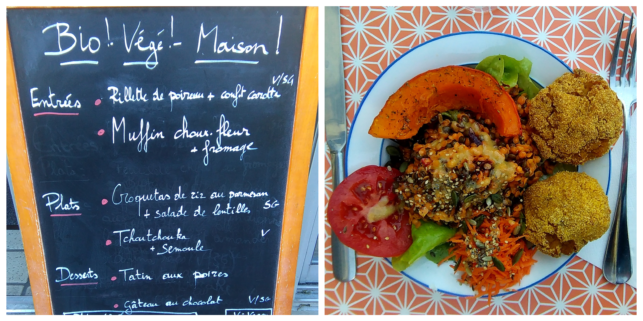 Bio! Végé! - Maison!
V/SG
Entrées • Rillette de poireau + confit carotte
• Muffin choux-fleur
+ fromage
Plats • Croquetas de riz au parmesan
+ salade de lentilles SG
• Tchoutchouka V
+ Semoule
Desserts • Tatin aux poires
• Gâteau au chocolat V/SG